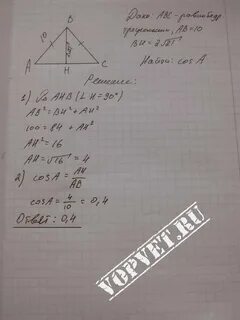 B
10
2√21
A
H
C
Дано: ABC - равнобедр
треугольник, AB=10
BH = 2√21
Найти: cos A
Решение:
1) Δ AHB (∠H = 90°)
AB² = BH² + AH²
100 = 84 + AH²
AH² = 16
AH = √16 = 4
2) cos A = AH/AB
cos A = 4/10 = 0,4
Ответ: 0,4
VOPVET.RU